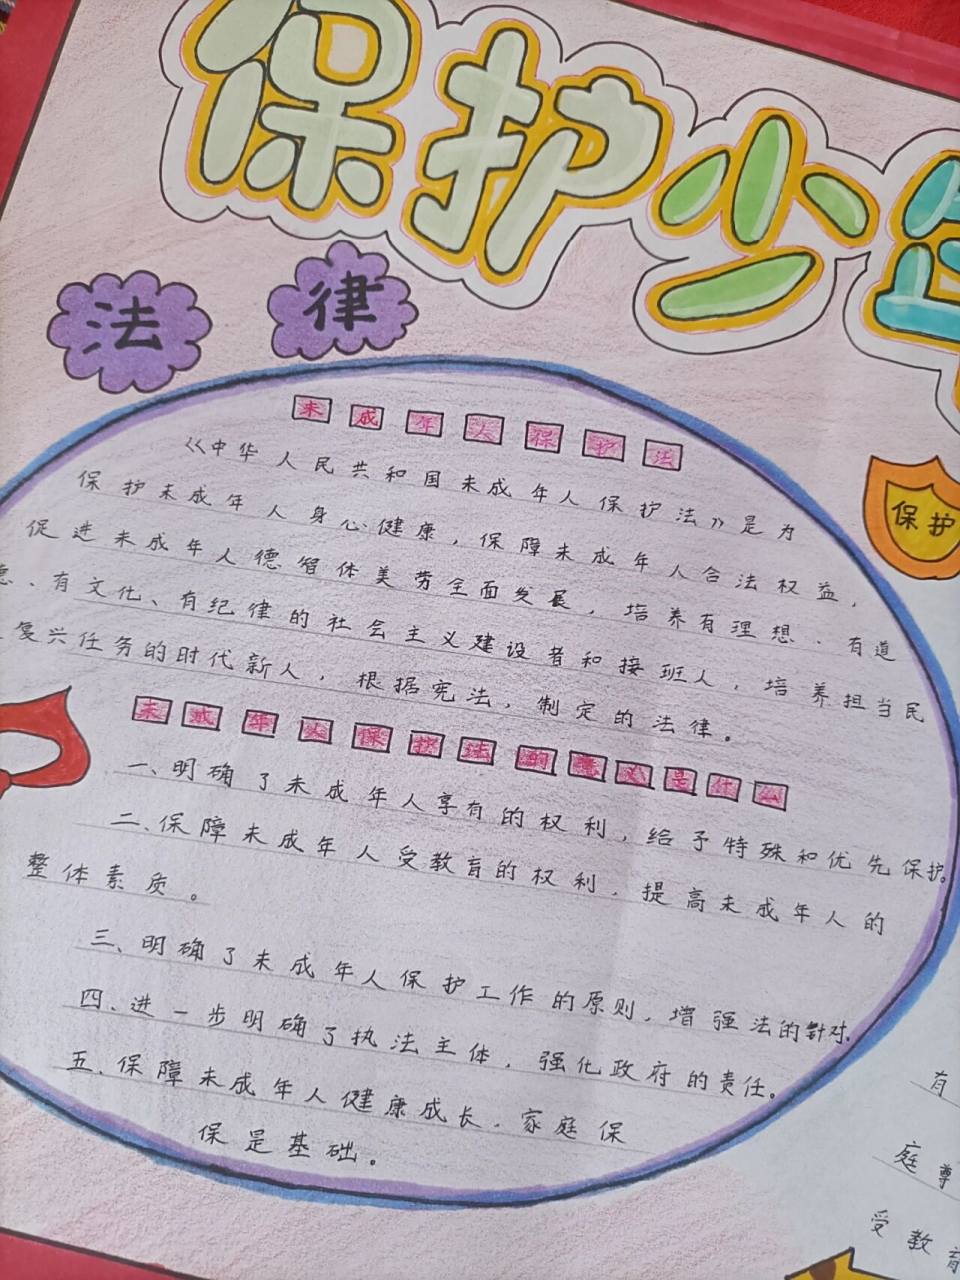 保护少年
法律
保护
未成年人保护法
《中华人民共和国未成年人保护法》是为
保护未成年人身心健康，保障未成年人合法权益，
促进未成年人德智体美劳全面发展，培养有理想、有道
、有文化、有纪律的社会主义建设者和接班人，培养担当民
复兴任务的时代新人，根据宪法，制定的法律。
未成年人保护法的意义是什么
一、明确了未成年人享有的权利，给予特殊和优先保护。
二、保障未成年人受教育的权利，提高未成年人的
整体素质。
三、明确了未成年人保护工作的原则，增强法的针对.
四、进一步明确了执法主体，强化政府的责任。
五、保障未成年人健康成长，家庭保
保是基础。
有
庭尊
受教育